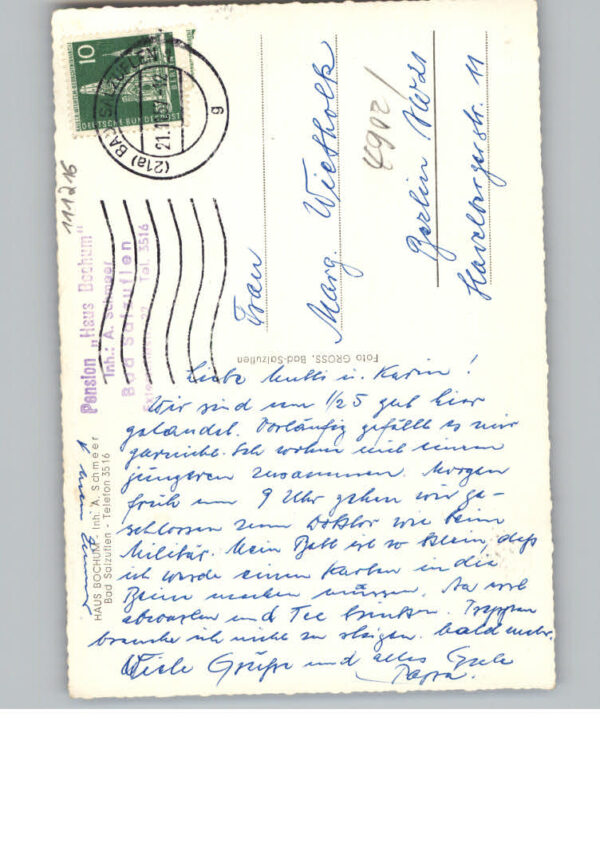 Liebe Mutti u. Karin!
Wir sind um 1/2 5 gut hier
gelandet. Vorläufig gefällt es mir
garnicht. Ich wohne mit einem
jüngeren zusammen. Morgen
früh um 9 Uhr gehen wir ge-
schlossen zum Doktor wie beim
Militär. Mein Bett ist so klein, daß
ich werde einen Knoten in die
Beine machen müssen. Na erst
abwarten und Tee trinken. Treppen
brauche ich nicht zu steigen. bald mehr.
Viele Grüße und alles Gute
Pappa.
Frau
Marg. Wietholz
Berlin NW21
Havelbergerstr. 11
4902/
10
DEUTSCHE BUNDESPOST
(21a) BAD SALZUFLEN
21.1
g
111216
Pension „Haus Bochum"
Inh.: A. Schmeer
Bad Salzuflen
Tel. 3516
HAUS BOCHUM, Inh. A. Schmeer
Bad Salzuflen - Telefon 3516
Foto GROSS, Bad-Salzuflen